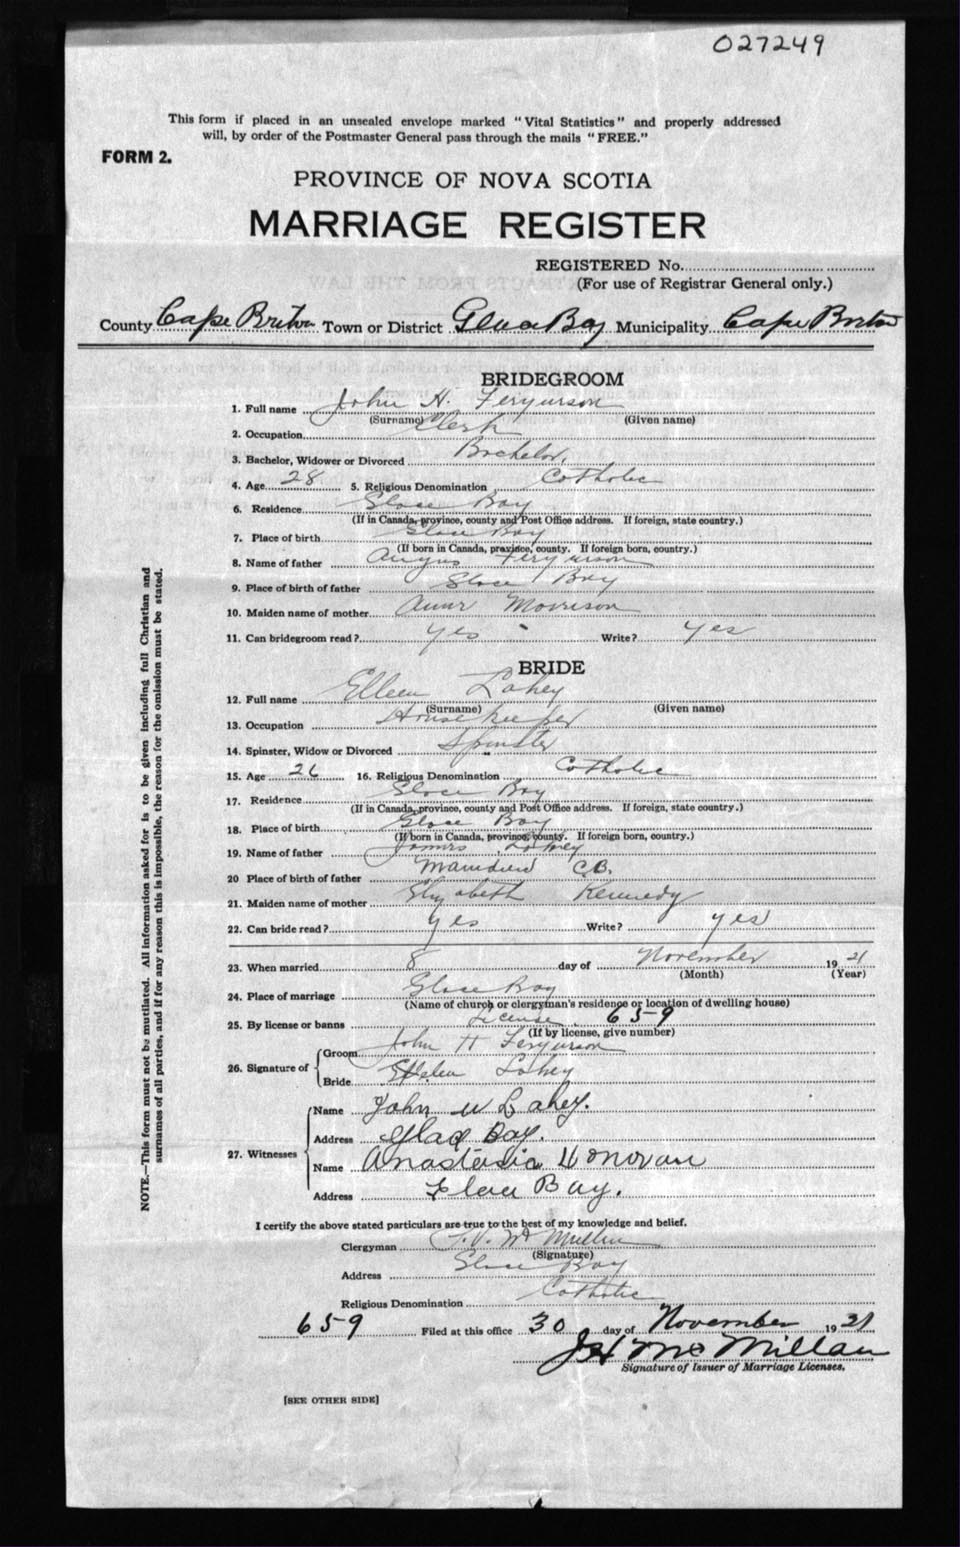 027249
This form if placed in an unsealed envelope marked "Vital Statistics" and properly addressed
will, by order of the Postmaster General pass through the mails "FREE."
FORM 2.
PROVINCE OF NOVA SCOTIA
MARRIAGE REGISTER
REGISTERED No.
(For use of Registrar General only.)
County Cape Breton Town or District Glace Bay Municipality Cape Breton
BRIDEGROOM
1. Full name John H. Fergurson
(Surname) (Given name)
2. Occupation Clerk
3. Bachelor, Widower or Divorced Bachelor
4. Age 28 5. Religious Denomination Catholic
6. Residence Glace Bay
(If in Canada, province, county and Post Office address. If foreign, state country.)
7. Place of birth Glace Bay
(If born in Canada, province, county. If foreign born, country.)
8. Name of father Angus Fergurson
9. Place of birth of father Glace Bay
10. Maiden name of mother Morrison
11. Can bridegroom read? yes Write? yes
BRIDE
12. Full name Elleen Lahey
(Surname) (Given name)
13. Occupation House keeper
14. Spinster, Widow or Divorced Spinster
15. Age 26 16. Religious Denomination Catholic
17. Residence Glace Bay
(If in Canada, province, county and Post Office address. If foreign, state country.)
18. Place of birth Glace Bay
(If born in Canada, province, county. If foreign born, country.)
19. Name of father James Lahey
20 Place of birth of father C.B.
21. Maiden name of mother Elizabeth Kennedy
22. Can bride read? yes Write? yes
23. When married 8 day of November 19 21
(Month) (Year)
24. Place of marriage Glace Bay
(Name of church or clergyman's residence or location of dwelling house)
25. By license or banns License 659
(If by license, give number)
26. Signature of
Groom John H Fergurson
Bride Lahey
27. Witnesses
Name John W Lahey.
Address Glace Bay.
Name Anastasia Donovan
Address Glace Bay.
I certify the above stated particulars are true to the best of my knowledge and belief.
Clergyman
(Signature)
Address Glace Bay
Religious Denomination Catholic
659 Filed at this office 30 day of November 19 21
McMillan
Signature of Issuer of Marriage Licenses.
[SEE OTHER SIDE]
NOTE.—This form must not be mutilated. All information asked for is to be given including full Christian and
surnames of all parties, and if for any reason this is impossible, the reason for the omission must be stated.